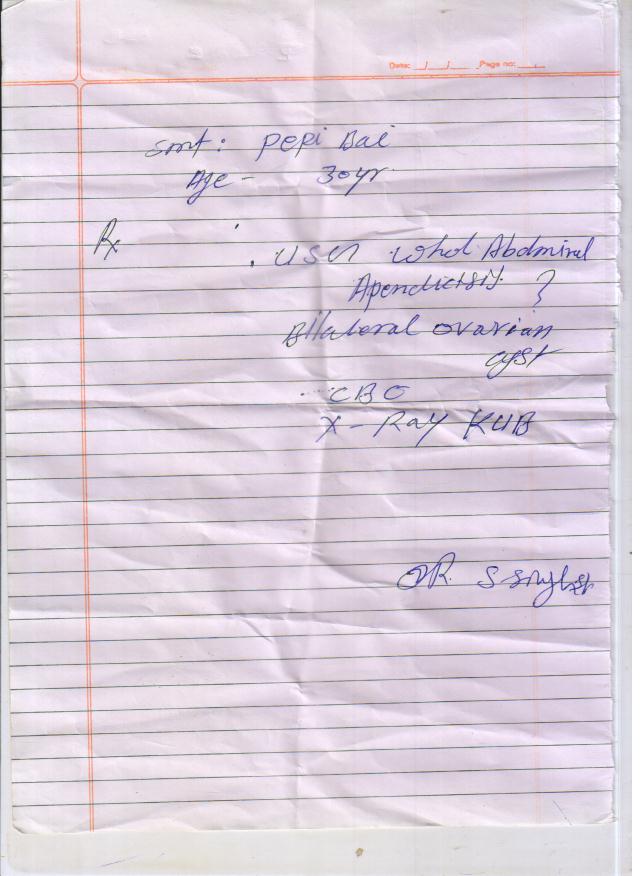 Date: __/__/__ Page no: ____
Smt: Pepi Bai
Age - 30yr.
Rx
. USG Whol Abdminal
Apendicisis. ?
Bilateral ovarian
cyst
CBC
X-Ray KUB
DR. S